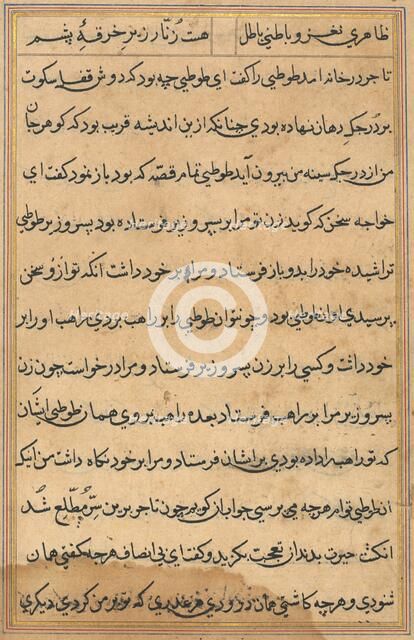 ظاهري نغز و باطني باطل هست زنار زير خرقهٔ پشم
تاجر در خانه امد طوطي را كفت اي طوطي چه بود كه دوش قفل سكوت
بر درجك دهان نهاده بودي چنانكه از بن انديشه قريب بود كه كوهر جان
من از درجك سينه من بيرون آيد طوطي تمام قصّه كه بود باز نمود كفت اي
خواجه سخن كه كويد زن تو مرا بر پسر وزير فرستاده بود پسر وزير طوطي
تراشيده خود را بدو باز فرستاد و مرا بر خود داشت آنكه تو ازو سخن
پرسيدي او انطوطي بود و چو نتوان طوطي را بر راهب بردي راهب او را بر
خود داشت و كسي را بر زن پسر وزير فرستاد و مرا درخواست چون زن
پسر وزير مرا بر راهب فرستاد بعده راهب بروي همان طوطي ايشان
كه تو راهب را داده بودي بر ايشان فرستاد و مرا بر خود نكاه داشت من اينك
ان طوطي توام هرچه مي پرسي جواب ان كويم چون تاجر برين سرّ مطّلع شد
انكشت حيرت بدندان تعجب بكزيد و كفت اي بي انصاف هرچه كفتي همان
شنودي و هرچه كاشتي همان درودي كه تو بر من كردي ديكري